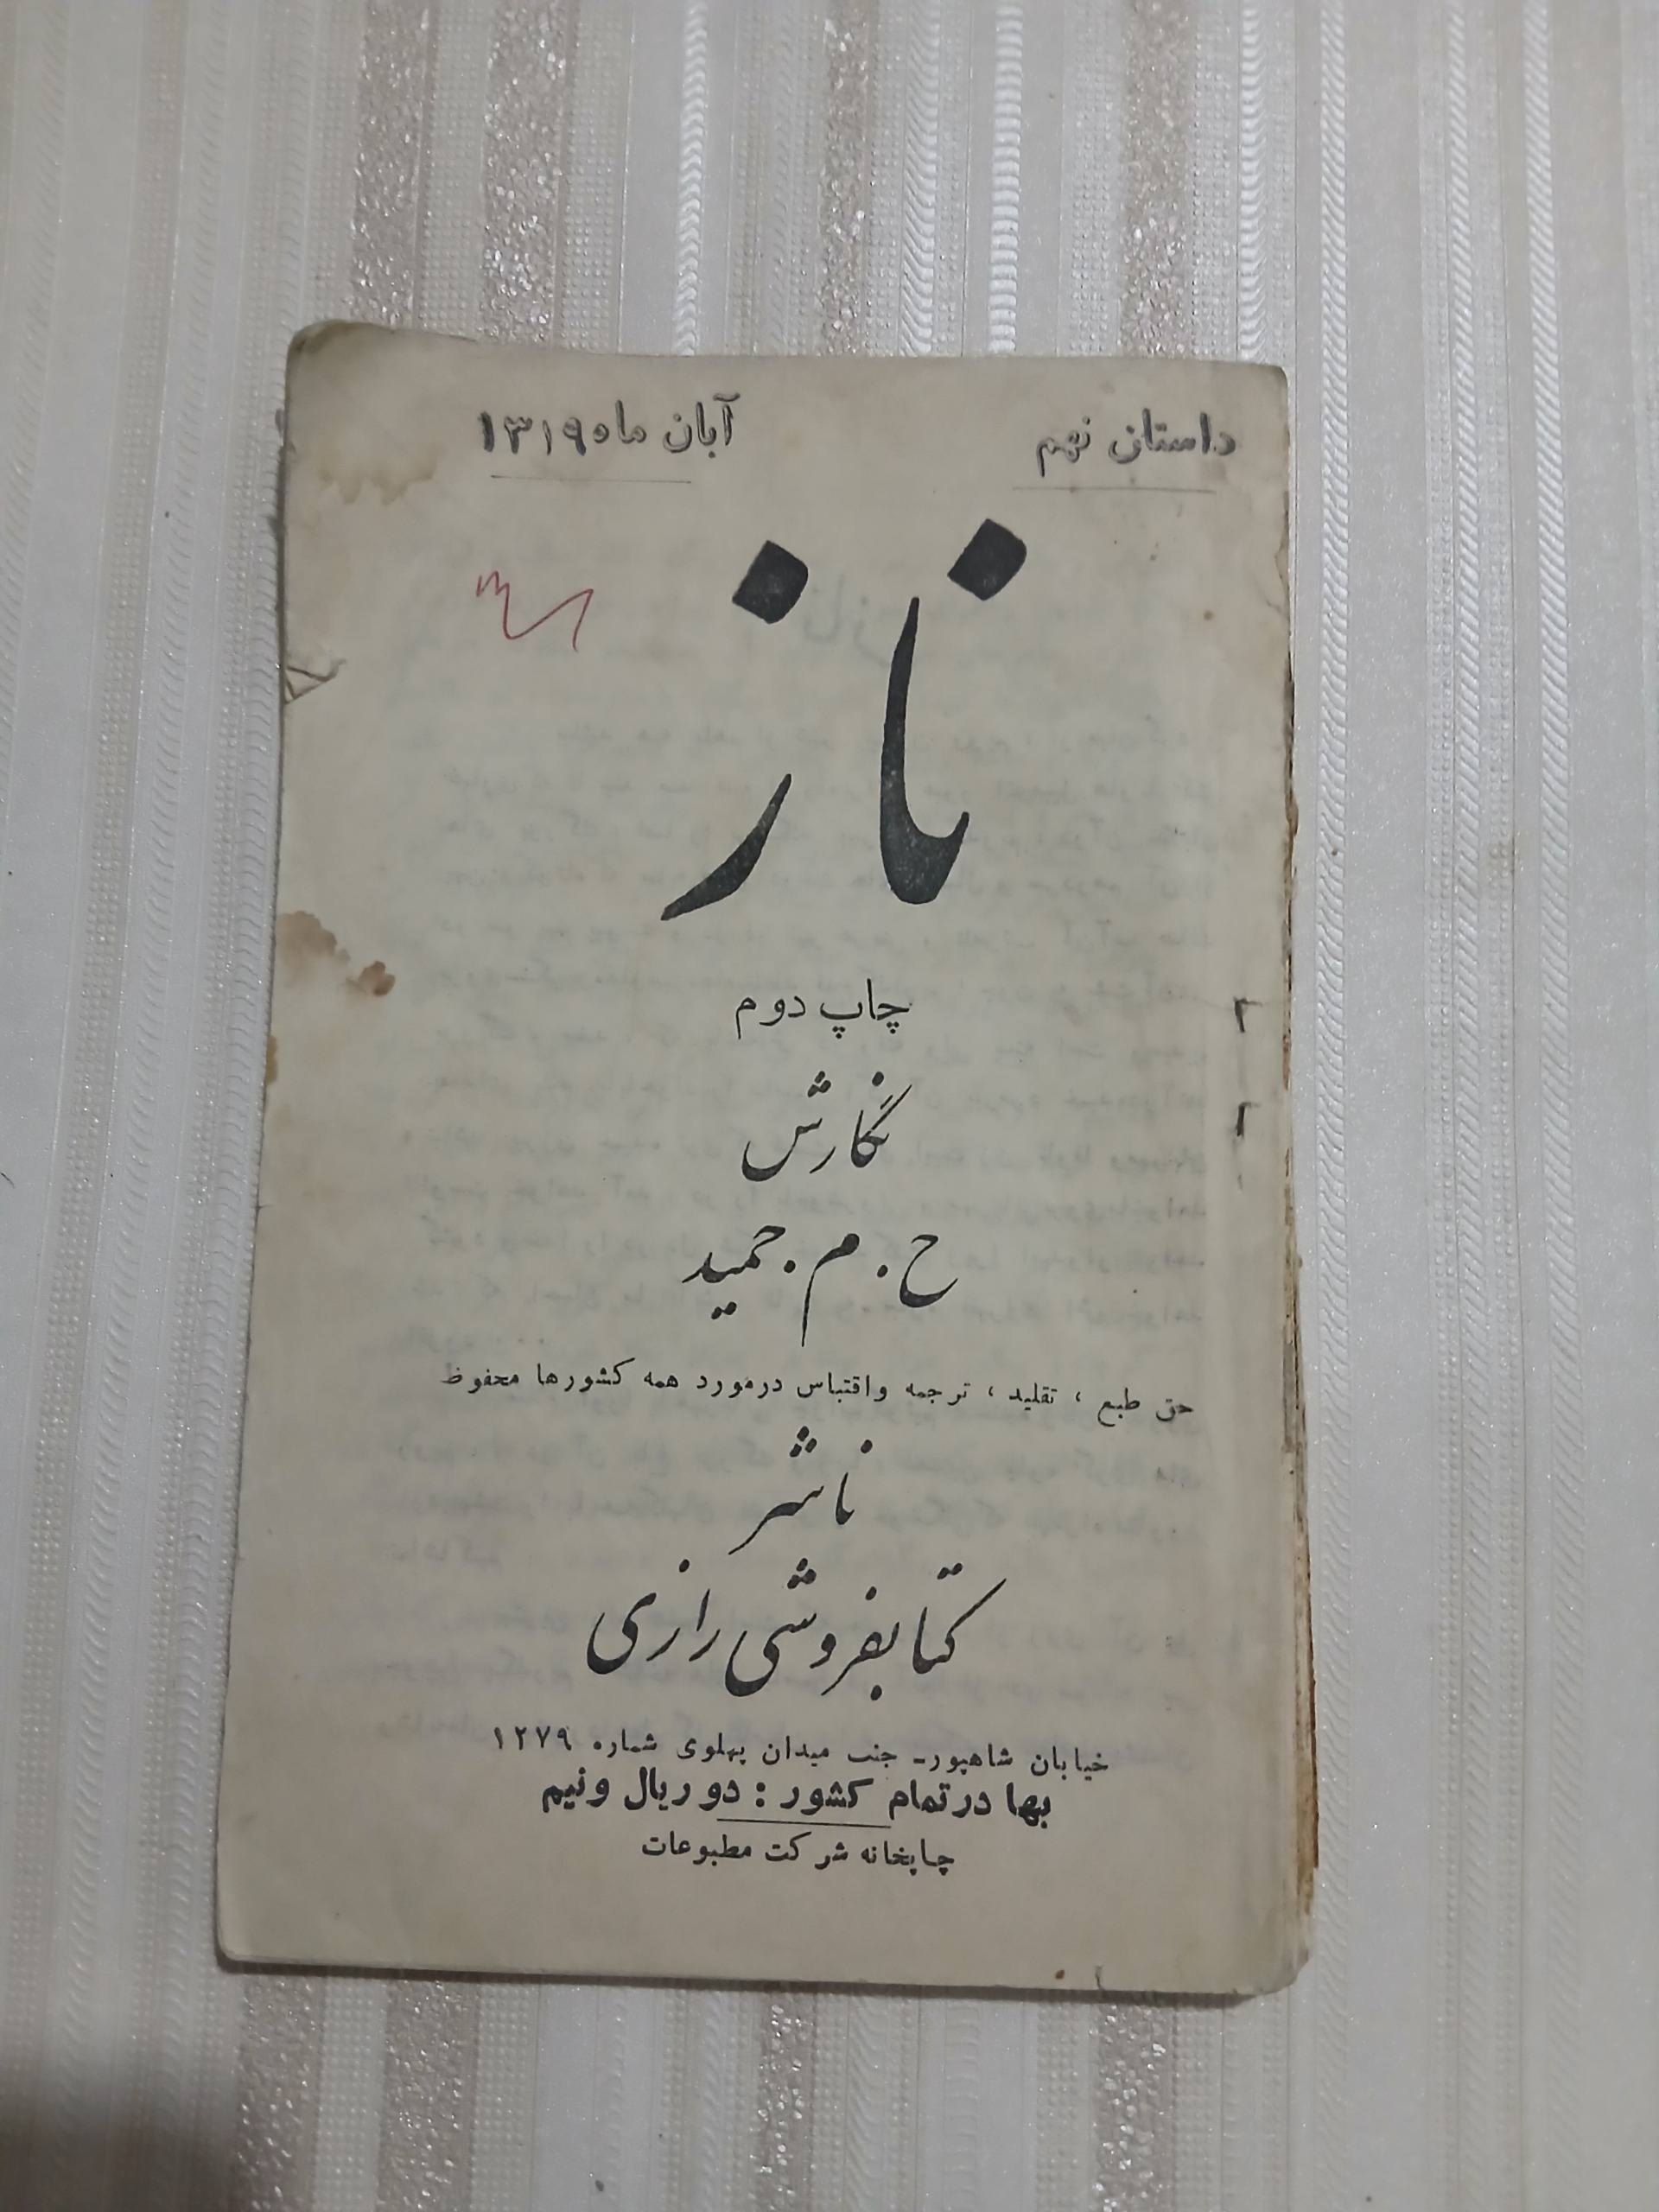 داستان نهم
آبان ماه ۱۳۱۹
ناز
چاپ دوم
نگارش
ح. م. حمید
حق طبع ، تقلید ، ترجمه واقتباس درمورد همه کشورها محفوظ
ناشر
کتابفروشی رازی
خیابان شاهپور- جنب میدان پهلوی شماره ۱۲۷۹
بها در تمام کشور : دو ریال و نیم
چاپخانه شرکت مطبوعات